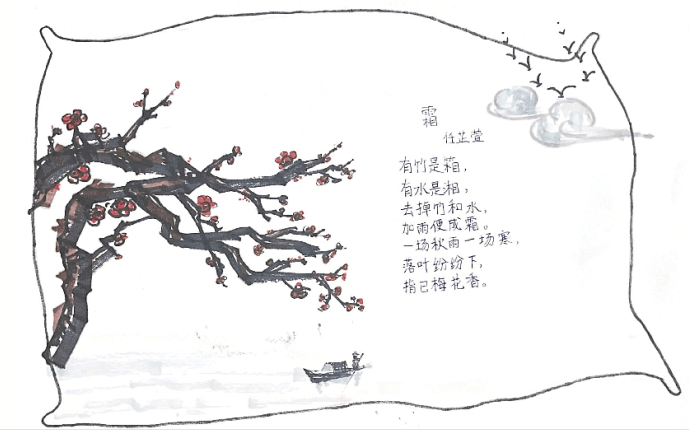 霜
任芷萱
有竹是箱，
有水是湘，
去掉竹和水，
加雨便成霜。
一场秋雨一场寒，
落叶纷纷下，
指已梅花香。